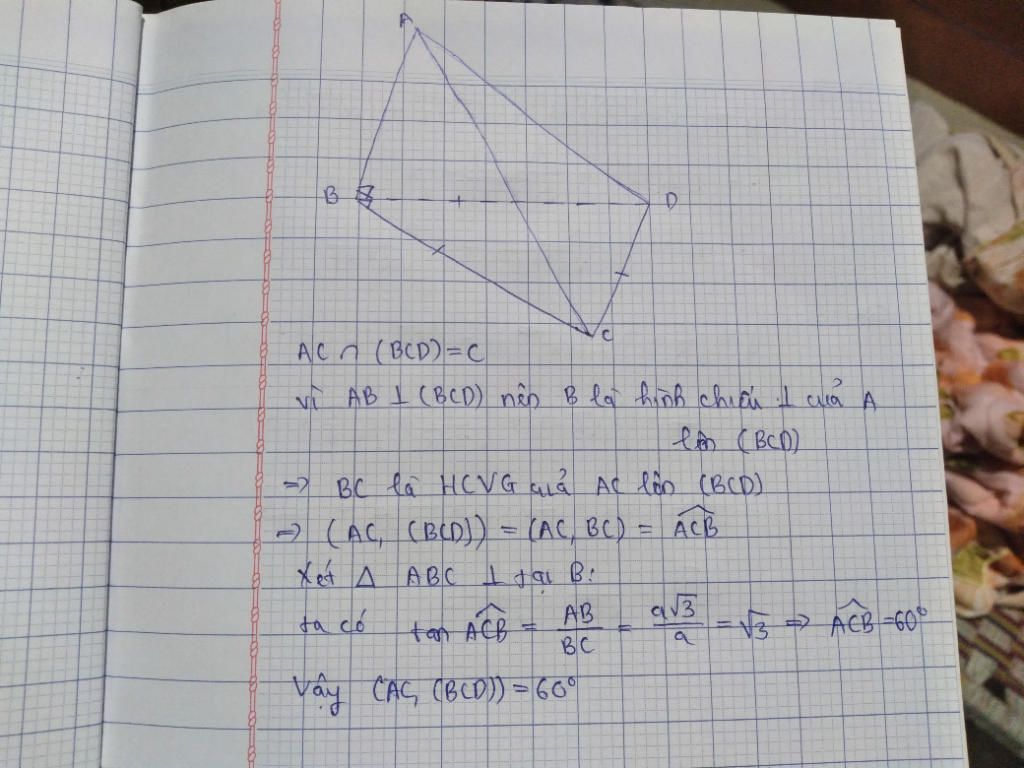 A
B
D
C
AC ∩ (BCD) = C
vì AB ⊥ (BCD) nên B là hình chiếu ⊥ của A
lên (BCD)
=> BC là HCVG của AC lên (BCD)
=> (AC, (BCD)) = (AC, BC) = \widehat{ACB}
Xét Δ ABC ⊥ tại B:
ta có tan \widehat{ACB} = \frac{AB}{BC} = \frac{a√3}{a} = √3 => \widehat{ACB} = 60°
Vậy (AC, (BCD)) = 60°